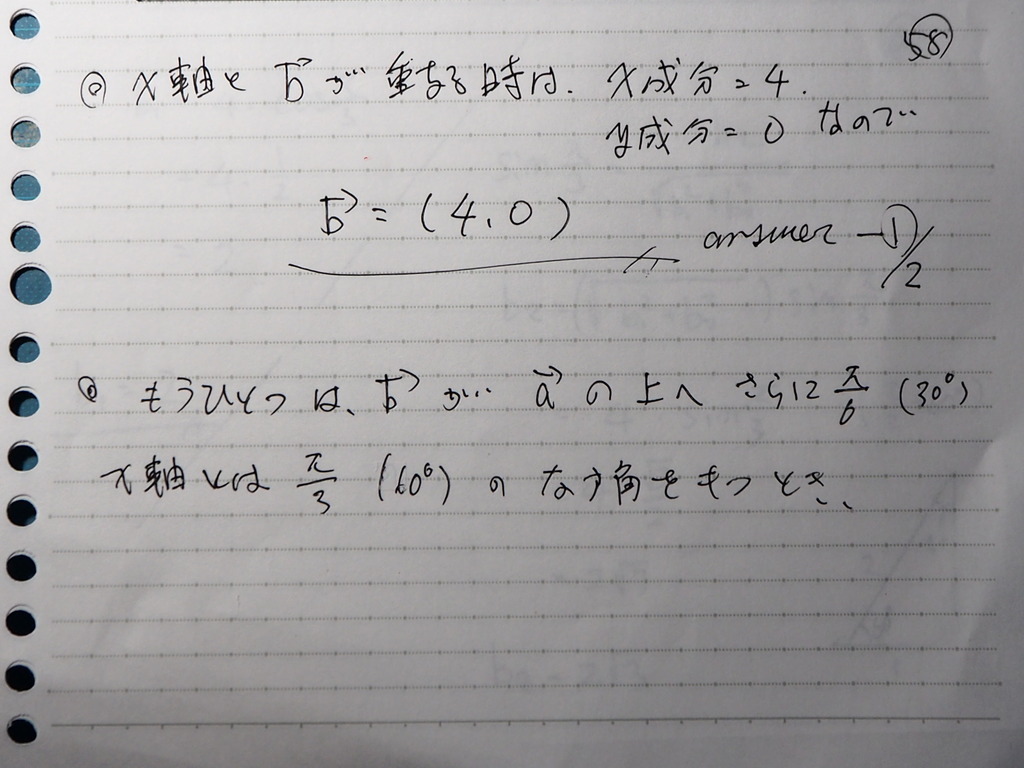 58
◎ x軸と b→ が 重なる時は、 x成分=4.
y成分=0 なので
b→ = (4, 0)
answer -①/2
◎ もうひとつは、b→ が a→ の上へ さらに π/6 (30°)
x軸とは π/3 (60°) の なす角をもつとき、